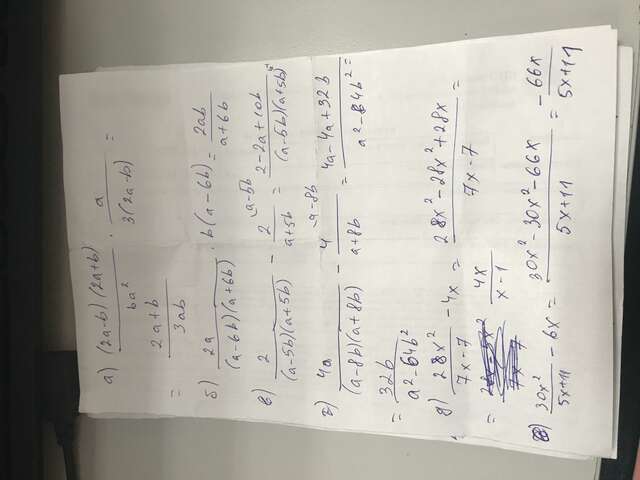 а) (2a-b)(2a+b) / ba² · a / 3(2a-b) =
= 2a+b / 3ab
б) 2a / (a-6b)(a+6b) · b(a-6b) = 2ab / a+6b
в) 2 / (a-5b)(a+5b) - 2 / a+5b = 2-2a+10b / (a-5b)(a+5b)
a-5b
г) 4a / (a-8b)(a+8b) - 4 / a+8b = 4a-4a+32b / a²-64b² =
a-8b
= 32b / a²-64b²
д) 28x² / 7x-7 - 4x = 28x²-28x²+28x / 7x-7 =
= 4x / x-1
е) 30x² / 5x+11 - 6x = 30x²-30x²-66x / 5x+11 = -66x / 5x+11